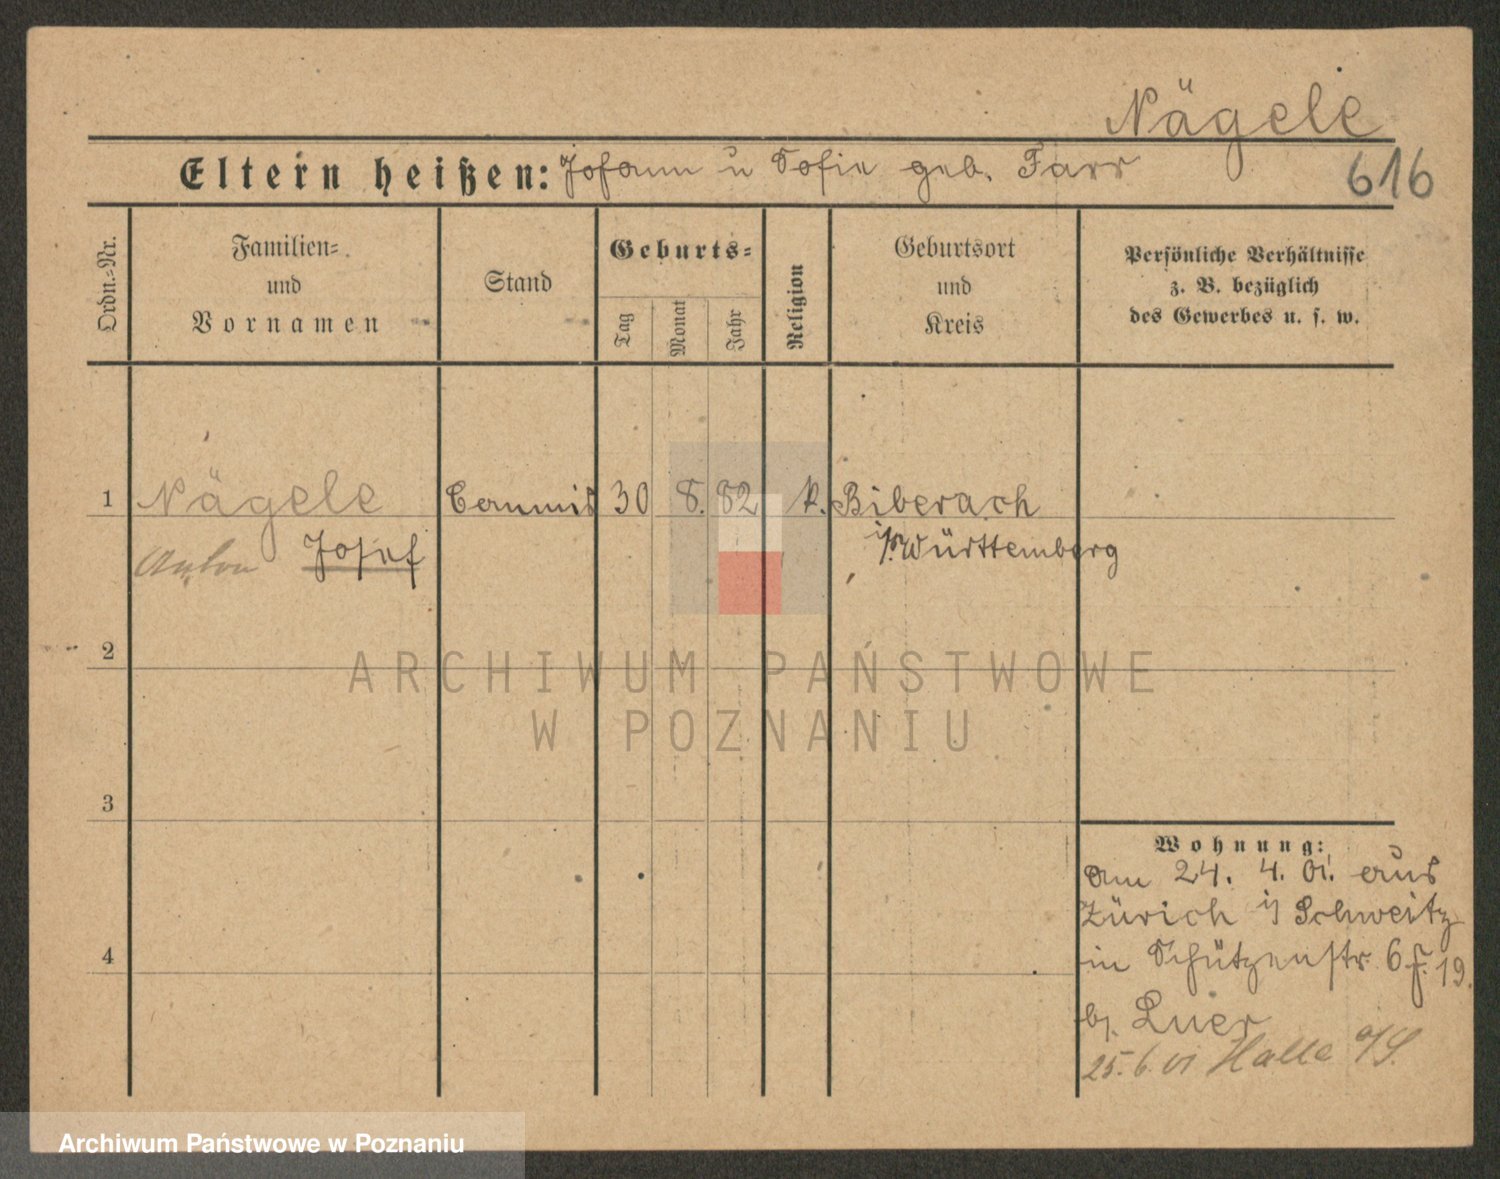 Nägele
616
Eltern heißen: Johann u Sofie geb. Farr
Ordn.-Nr.
Familien-
und
Vornamen
Stand
Geburts-
Tag
Monat
Jahr
Religion
Geburtsort
und
Kreis
Persönliche Verhältnisse
z. B. bezüglich
des Gewerbes u. s. w.
1 Nägele Commis 30 8. 82 k. Biberach
Anton Josef i/Württemberg
2
3
4
Wohnung:
am 24. 4. 01. aus
Zürich i/ Schweitz
in Schützenstr 6 19.
b/. Luer
25. 6. 01 Halle a/S.
ARCHIWUM PAŃSTWOWE
W POZNANIU
Archiwum Państwowe w Poznaniu